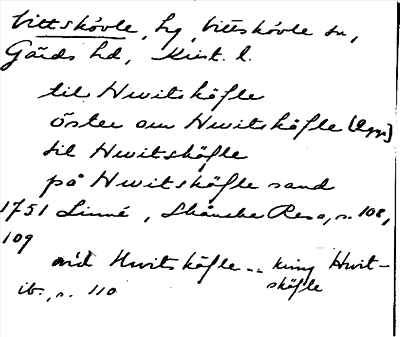 Vittskövle, hg, Vittskövle sn,
Gärds hd, Krist. l.
til Hwitsköfle
öster om Hwitsköfle
til Hwitsköfle
på Hwitsköfle sand
1751 Linné, Skånska Resa, s. 108,
109
wid Hwitsköfle .. kring Hwit-
sköfle
ib., s. 110